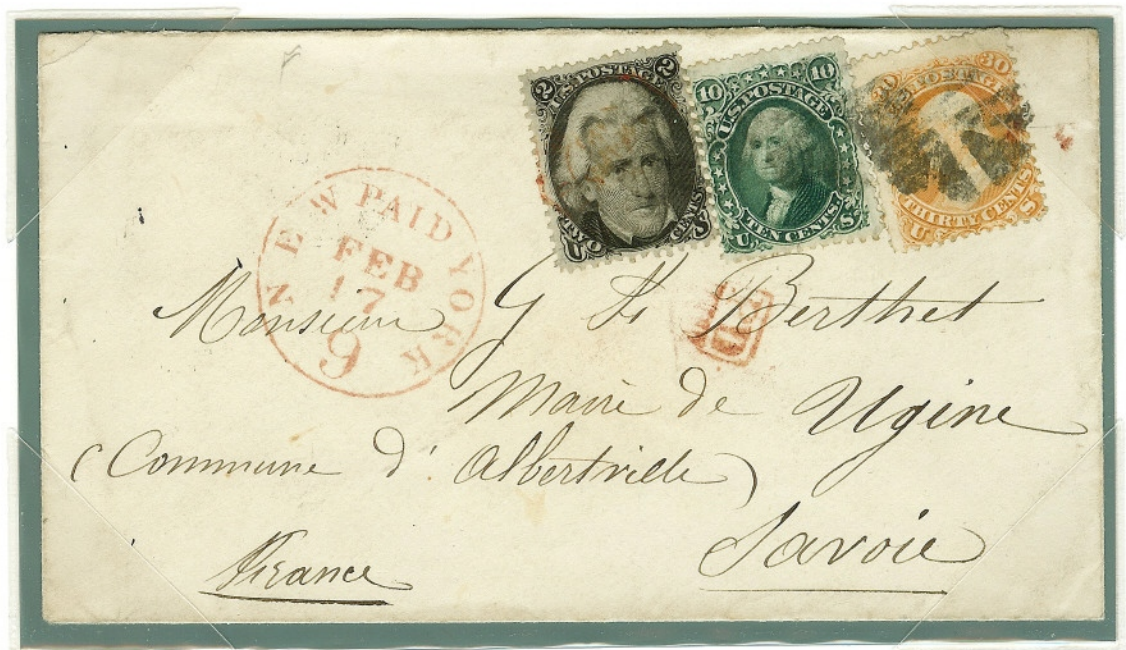 2 U.S. POSTAGE 2
TWO CENTS
U S
10 U.S. POSTAGE 10
TEN CENTS
U S
30 U.S. POSTAGE 30
THIRTY CENTS
U S
NEW PAID YORK
FEB
17
9
Monsieur G Berthet
Maire de Ugine
(Commune d'Albertville)
Savoie
France